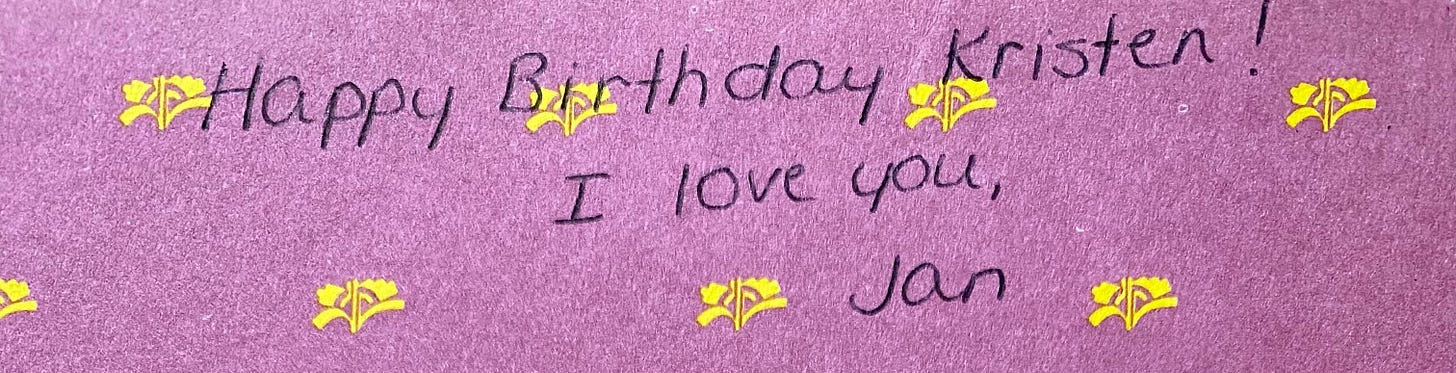 Happy Birthday Kristen!
I love you,
Jan